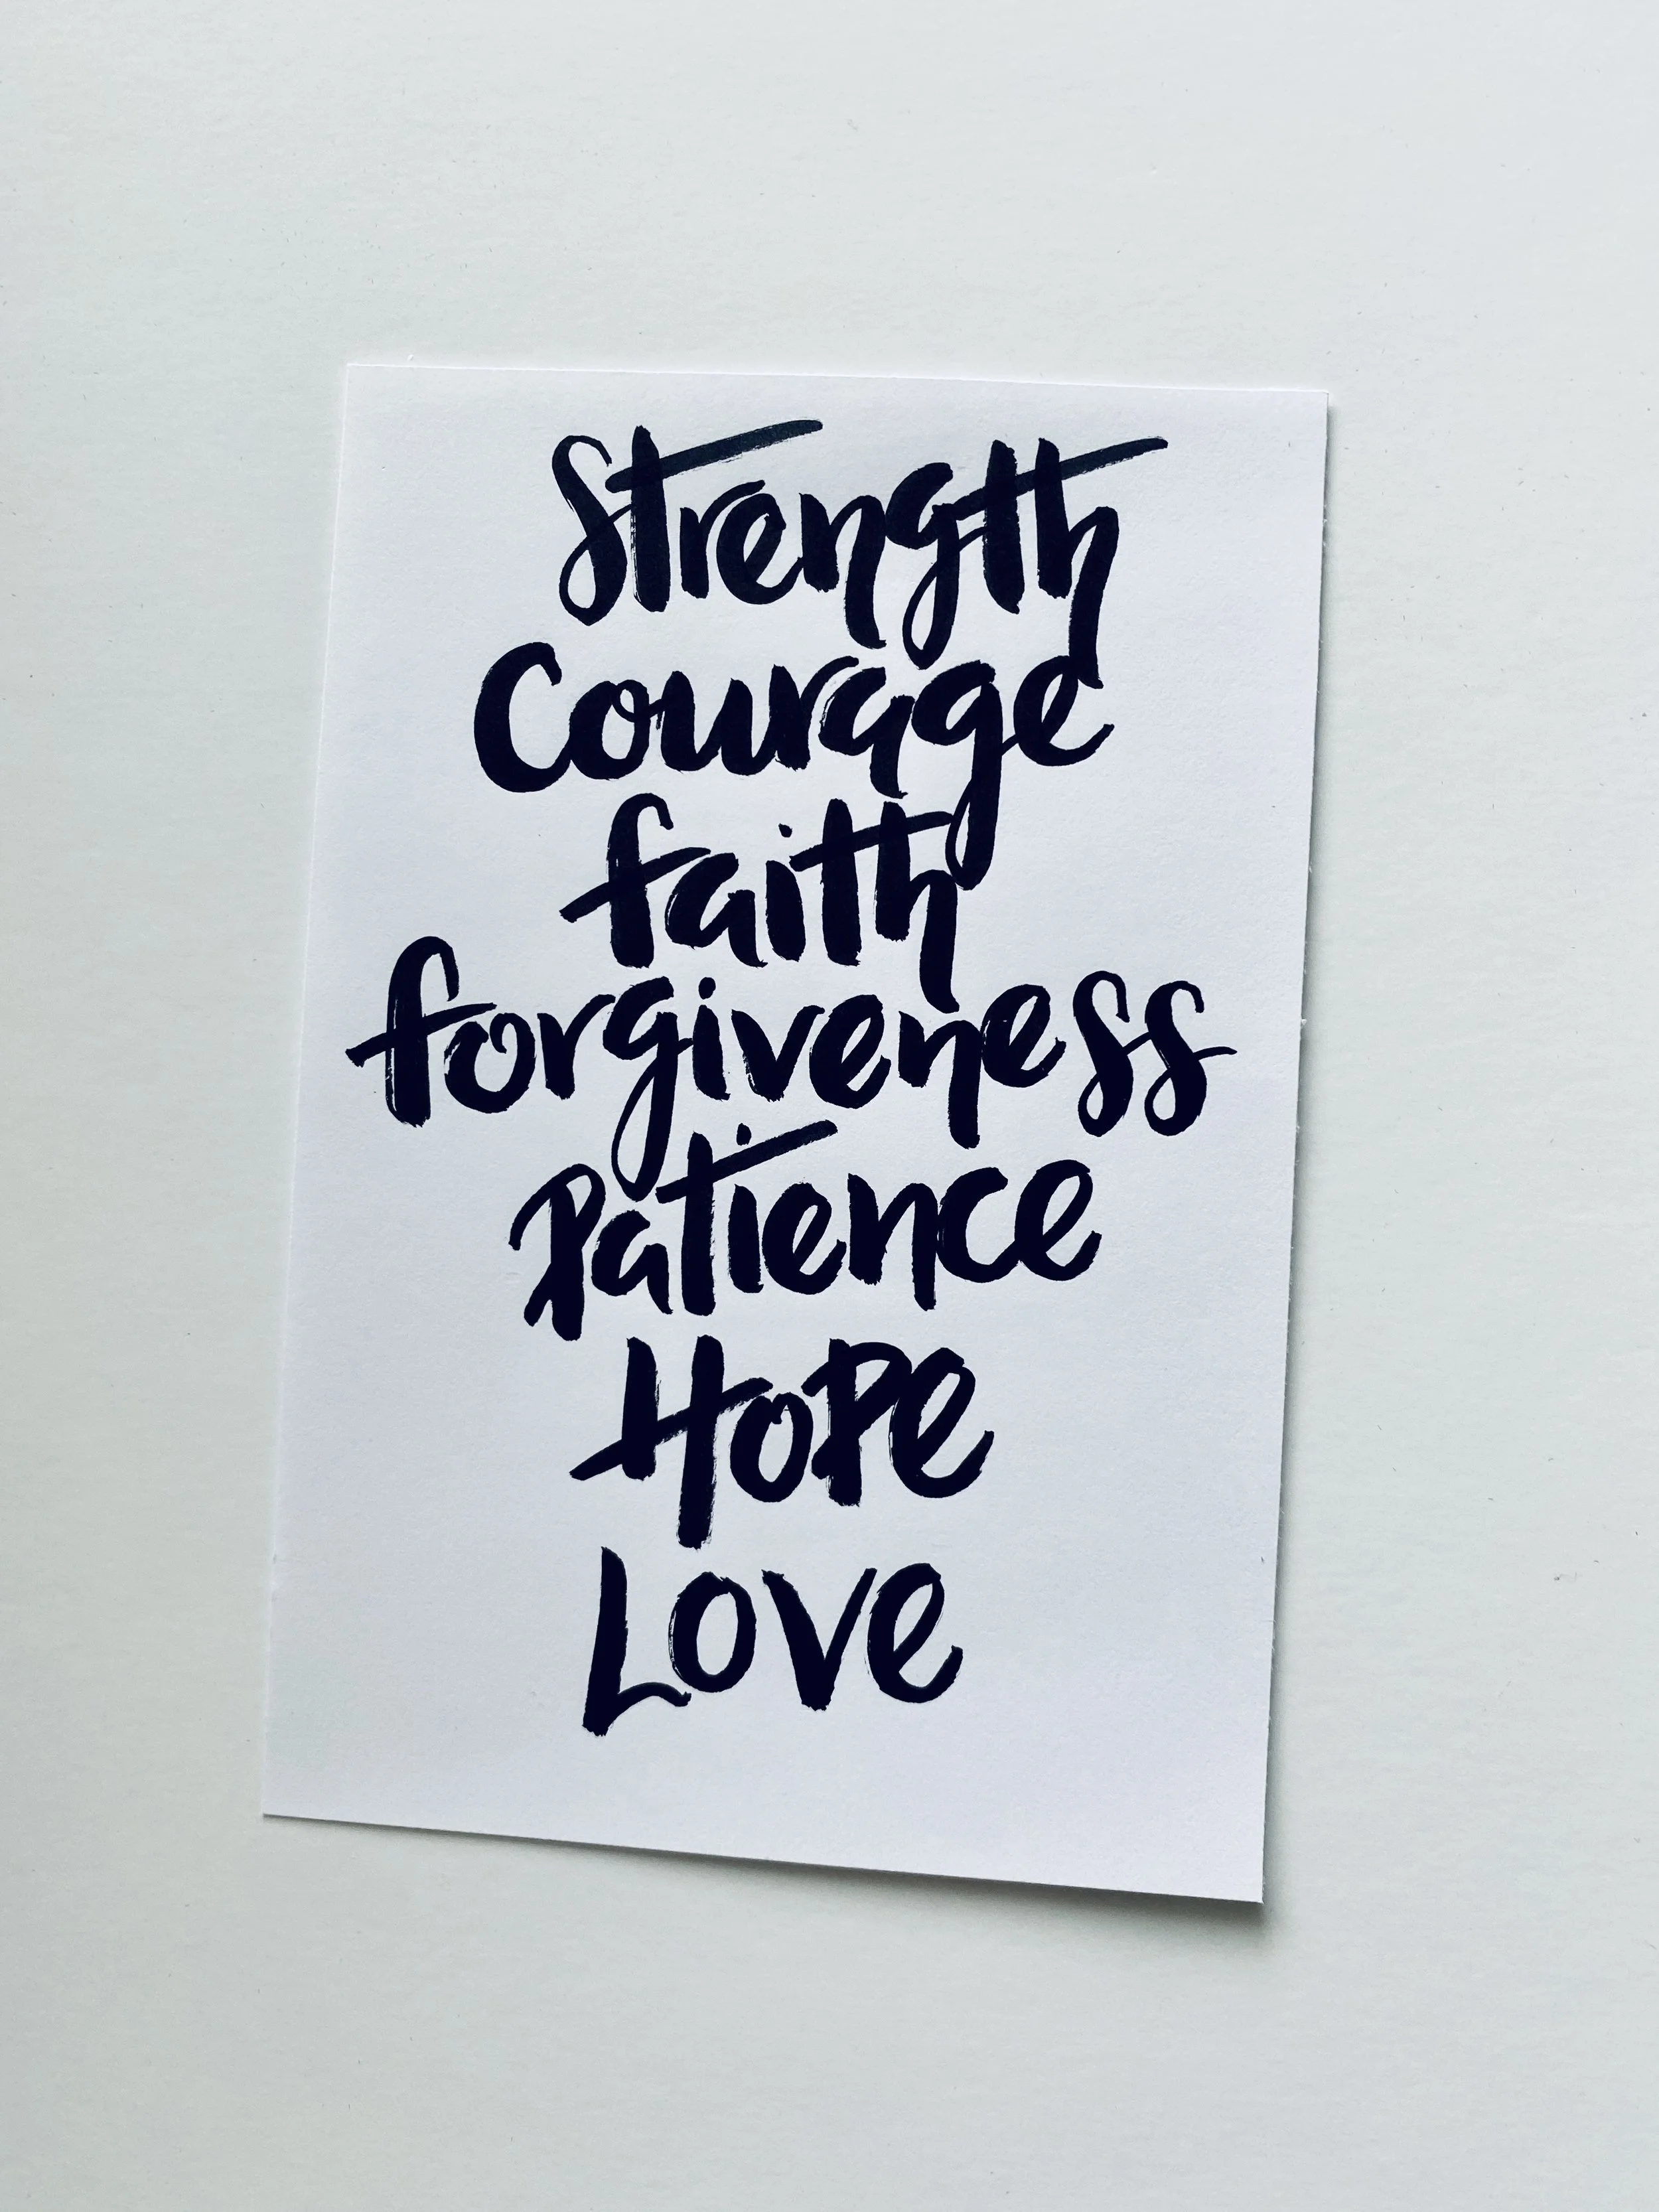 Strength
Courage
faith
forgiveness
Patience
HoPe
Love